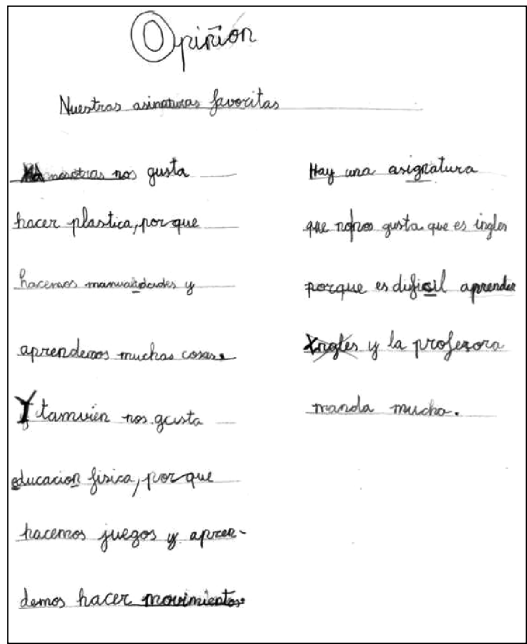 Opinion
Nuestras asinaturas favoritas
A nosotras nos gusta
hacer plastica, por que
hacemos manualidades y
aprendemos muchas cosas.
Y tamvién nos gusta
educacion fisica, por que
hacemos juegos y apren-
demos hacer movimientos.
Hay una asignatura
que no nos gusta que es ingles
porque es dificil aprender
Ingles y la profesora
manda mucho.